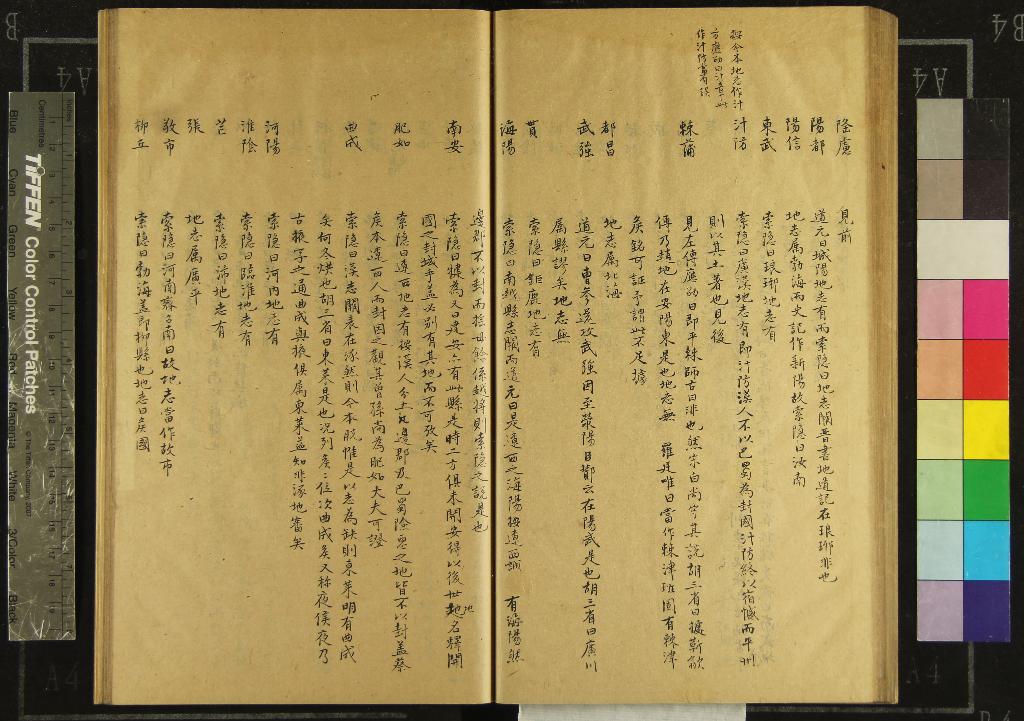 按今本地志作汁
方應劭曰汁音
作汁防
隆慮
見前
陽都
道元曰城陽地志有而索隱曰地志闕晉書地道記在琅琊非也
陽信
地志属勃海而史記作新陽故索隱曰汝南
東武
索隱曰琅琊地志有
汁防
索隱曰廣漢地志有即汁防漢人不以巴蜀為封國汁防終以宿憾而平州
則以其土著也見後
棘蒲
見左傳應劭曰即平棘師古曰非也然宗白尚守其說胡三省曰據靳歙
傳乃趙地在安陽東是也地志無
羅廷唯曰當作棘津班固有棘津
矦銘可証予謂此不足據
都昌
地志属北海
武強
道元曰曹參還攻武強因至滎陽
在陽武是也胡三省曰廣川
属縣謬矣地志無
貰
索隱曰鉅鹿地志有
海陽
索隱曰南越縣志闕而道元曰是遼西之海陽按遼西
有海陽然
邊郡不以封而摇毋餘係越將則索隱之說是也
南安
索隱曰犍為又曰建安六有此縣是時二方俱未開安得以後世地名釋開
國之封域乎盖必别有其地而不可攷矣
肥如
索隱曰遼西地志有按漢人分土凡邊郡及巴蜀險惡之地皆不以封盖蔡
矦本遼西人而封因之觀其曾孫尚為肥如大夫可證
曲成
索隱曰漢志闕表在涿然則今本脱惟是以志為缺則東萊明有曲成
矣何各烘也胡三省曰東萊是也况列矦位次曲成矦又称夜侯夜乃
古掖字之通曲成與掖俱属東萊益知非涿地審矣
河陽
索隱曰河内地志有
淮陰
索隱曰臨淮地志有
芒
索隱曰沛地志有
張
地志属廣平
敬市
索隱曰河南
曰故地志當作故市
柳丘
索隱曰勃海盖即柳縣也地志曰矦國
TIFFEN Color Control Patches
Centimetres
Inches
Blue
Cyan
Green
Yellow
Red
Magenta
White
3/Color
Black
A4
B
B4